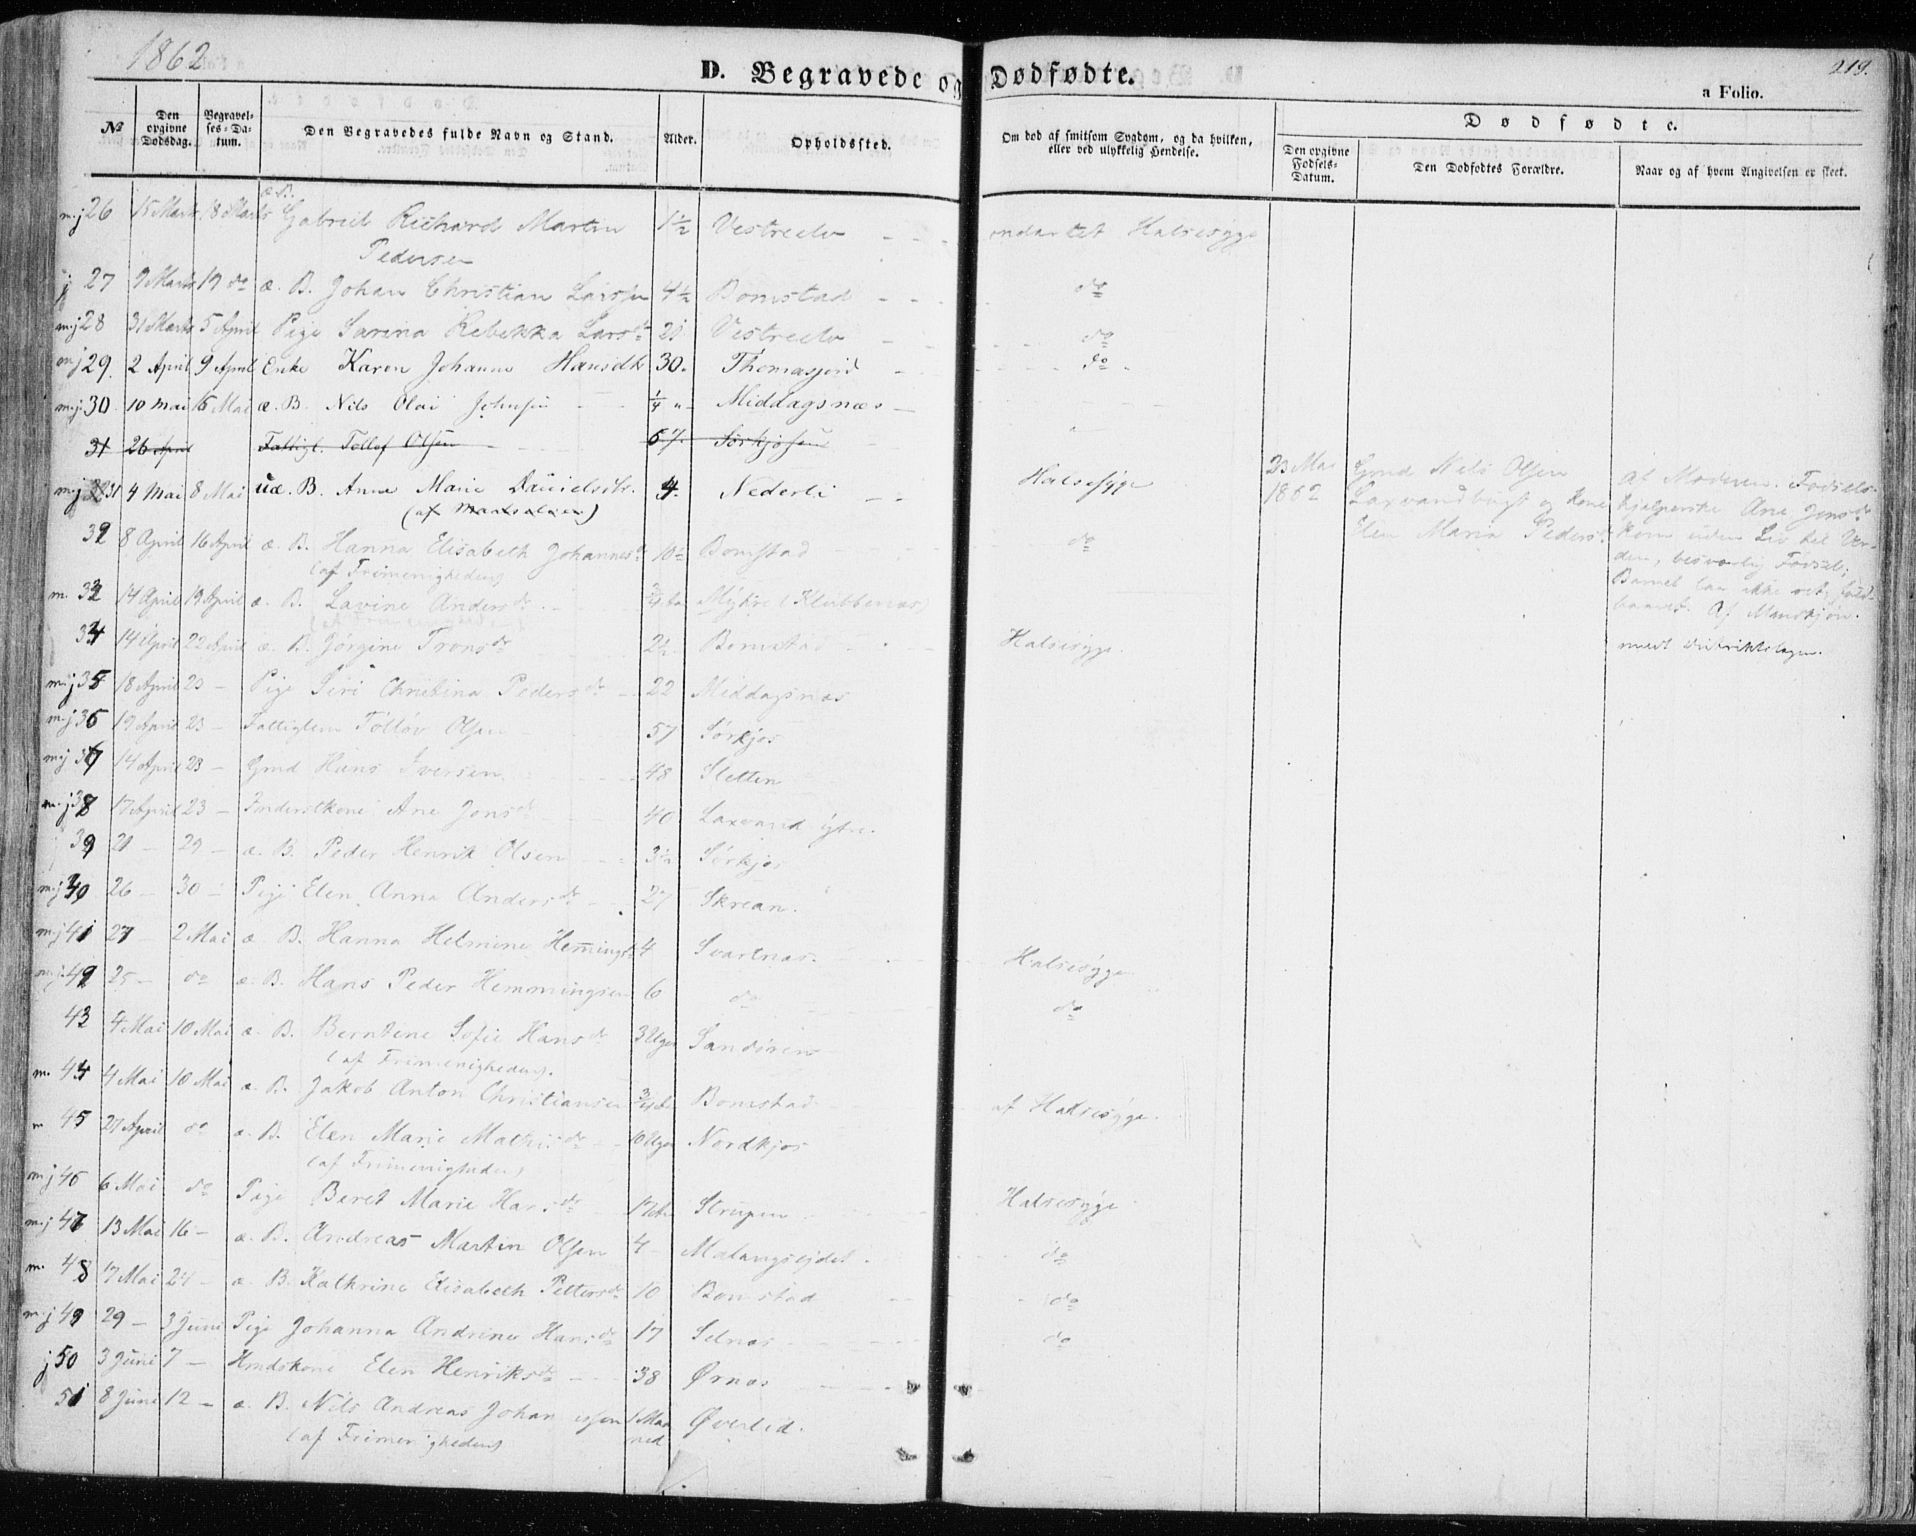 1862
D. Begravede og Dødfødte.
219.
a Folio.
№
Den opgivne Dødsdag.
Begravelses-Datum.
Den Begravedes fulde Navn og Stand.
Alder.
Opholdssted.
Om død af smitsom Sygdom, og da hvilken, eller ved ulykkelig Hendelse.
Dødfødte.
Den opgivne Fødsels-Datum.
Den Dødfødtes Forældre.
Naar og af hvem Angivelsen er skeet.
m.j 26 15 Marts 18 Marts æ. B. Gabriel Richard Martin Pedersen 1½ Vestreelv ondartet Halsesyge
j 27 9 Marts 19 do æ. B. Johan Christian Larssen 4½ Bomstad do
m.j 28 31 Marts 5 April Pige Sarina Rebekka Larsdr Vestreelv do
m.j 29. 2 April 9 April Enke Karen Johanna Hansdtr 30. Thomasjord do.
m.j. 30. 10 Mai 16 Mai æ. B. Nils Olai Johnsen ¼ Middagsnæs
31 26 April Fattigl. Tollef Olsen 57. Sørkjosen
m.j 31 4 Mai 8 Mai uæ. B. Anne Marie Danielsdtr. 4. Nederli Halsesyge
23 Mai 1862
Gmd Nils Olsen
Laxvandbugt og Kone
Elen Maria Pedersdr
Af Moderen. Fødsels-
hjælperske Ane Jonsdr
Kom uden Liv til Ver-
den, besværlig Fødsel;
Barnet var ikke ret fuld-
baaret. Af Mandkjøn.
meldt Distriktslægen.
32 8 April 16 April æ. B. Hanna Elisabeth Johannesdr 10½ Bomstad do
(af Frimenigheden)
m. 33 14 April 19 April æ. B. Lavine Andersdr ¾ Mykre (Klubbenæs)
34 14 April 22 April æ. B. Jørgine Tronsdr 2½ Bomstad Halsesyge.
m.j 35 18 April 23 Pige Siri Christina Pedersdr 22 Middagsnæs
m.j 36 19 April 23 Fattiglem Tolløv Olsen 57 Sørkjos
m.j 37 14 April 23 Gmd Hans Iversen 48 Sletten
m.j 38 17 April 23 Inderstkone Ane Jonsdr 40 Laxvand ytre.
39 21 29 æ. B. Peder Henrik Olsen 3½ Sørkjos
m.j 40 26 30 Pige Elen Anna Andersdr 27 Skrean.
m.j 41 27 2 Mai æ. B. Hanna Helmine Hemmingsdr 4 Svartnæs. Halsesyge
m.j. 42 25 do æ. B. Hans Peder Hemmingsen 6 do do
43 4 Mai 10 Mai æ. B. Berntine Sofie Hansdr 3 Uger Sandøren
(af Frimenigheden).
m. 44 4 Mai 10 Mai æ. B. Jakob Anton Christiansen ¾ Bomstad af Halsesyge.
m 45 27 April do æ. B. Elen Marie Mathisdr 10 Uger Nordkjos
(af Frimenigheden)
m.j 46 6 Mai do Pige Beret Marie Hansdr Strupen Halsesyge
m.j 47 13 Mai 16 æ. B. Andreas Martin Olsen 4 Malangsejdet do
m. 48 17 Mai 24 æ. B. Kathrine Elisabeth Pettersdr 10 Bomstad do
m.j 49 29 3 Juni Pige Johanna Andrine Hansdr 17 Selnæs do
j 50 3 Juni 7 Hmdskone Elen Henriksdr 38 Ørnæs
51 8 Juni 12 æ. B. Nils Andreas Johannessen 1 Maaned Øverlid.
(af Frimenigheden)